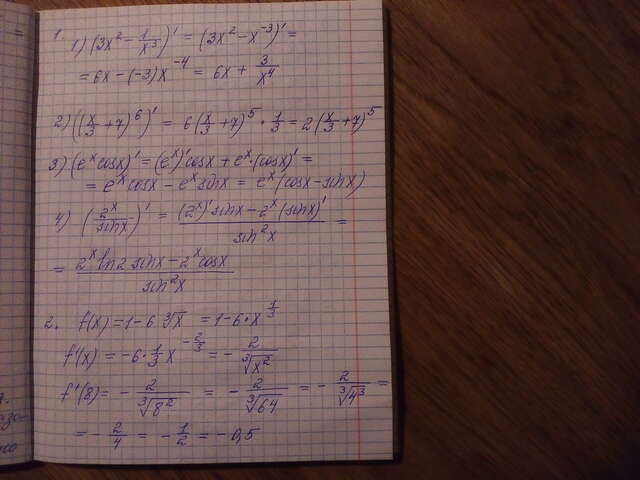 1. 1) (3x² - 1/x³)' = (3x² - x⁻³)' =
= 6x - (-3)x⁻⁴ = 6x + 3/x⁴
2) ((x/3 + 7)⁶)' = 6(x/3 + 7)⁵ · 1/3 = 2(x/3 + 7)⁵
3) (eˣcosx)' = (eˣ)'cosx + eˣ·(cosx)' =
= eˣcosx - eˣsinx = eˣ(cosx - sinx)
4) (2ˣ/sinx)' = ((2ˣ)'sinx - 2ˣ(sinx)')/sin²x =
= (2ˣln2 sinx - 2ˣcosx)/sin²x
2. f(x) = 1 - 6∛x = 1 - 6·x^(1/3)
f'(x) = -6·1/3 x^(-2/3) = - 2/∛x²
f'(8) = - 2/∛8² = - 2/∛64 = - 2/∛4³ =
= - 2/4 = - 1/2 = -0,5